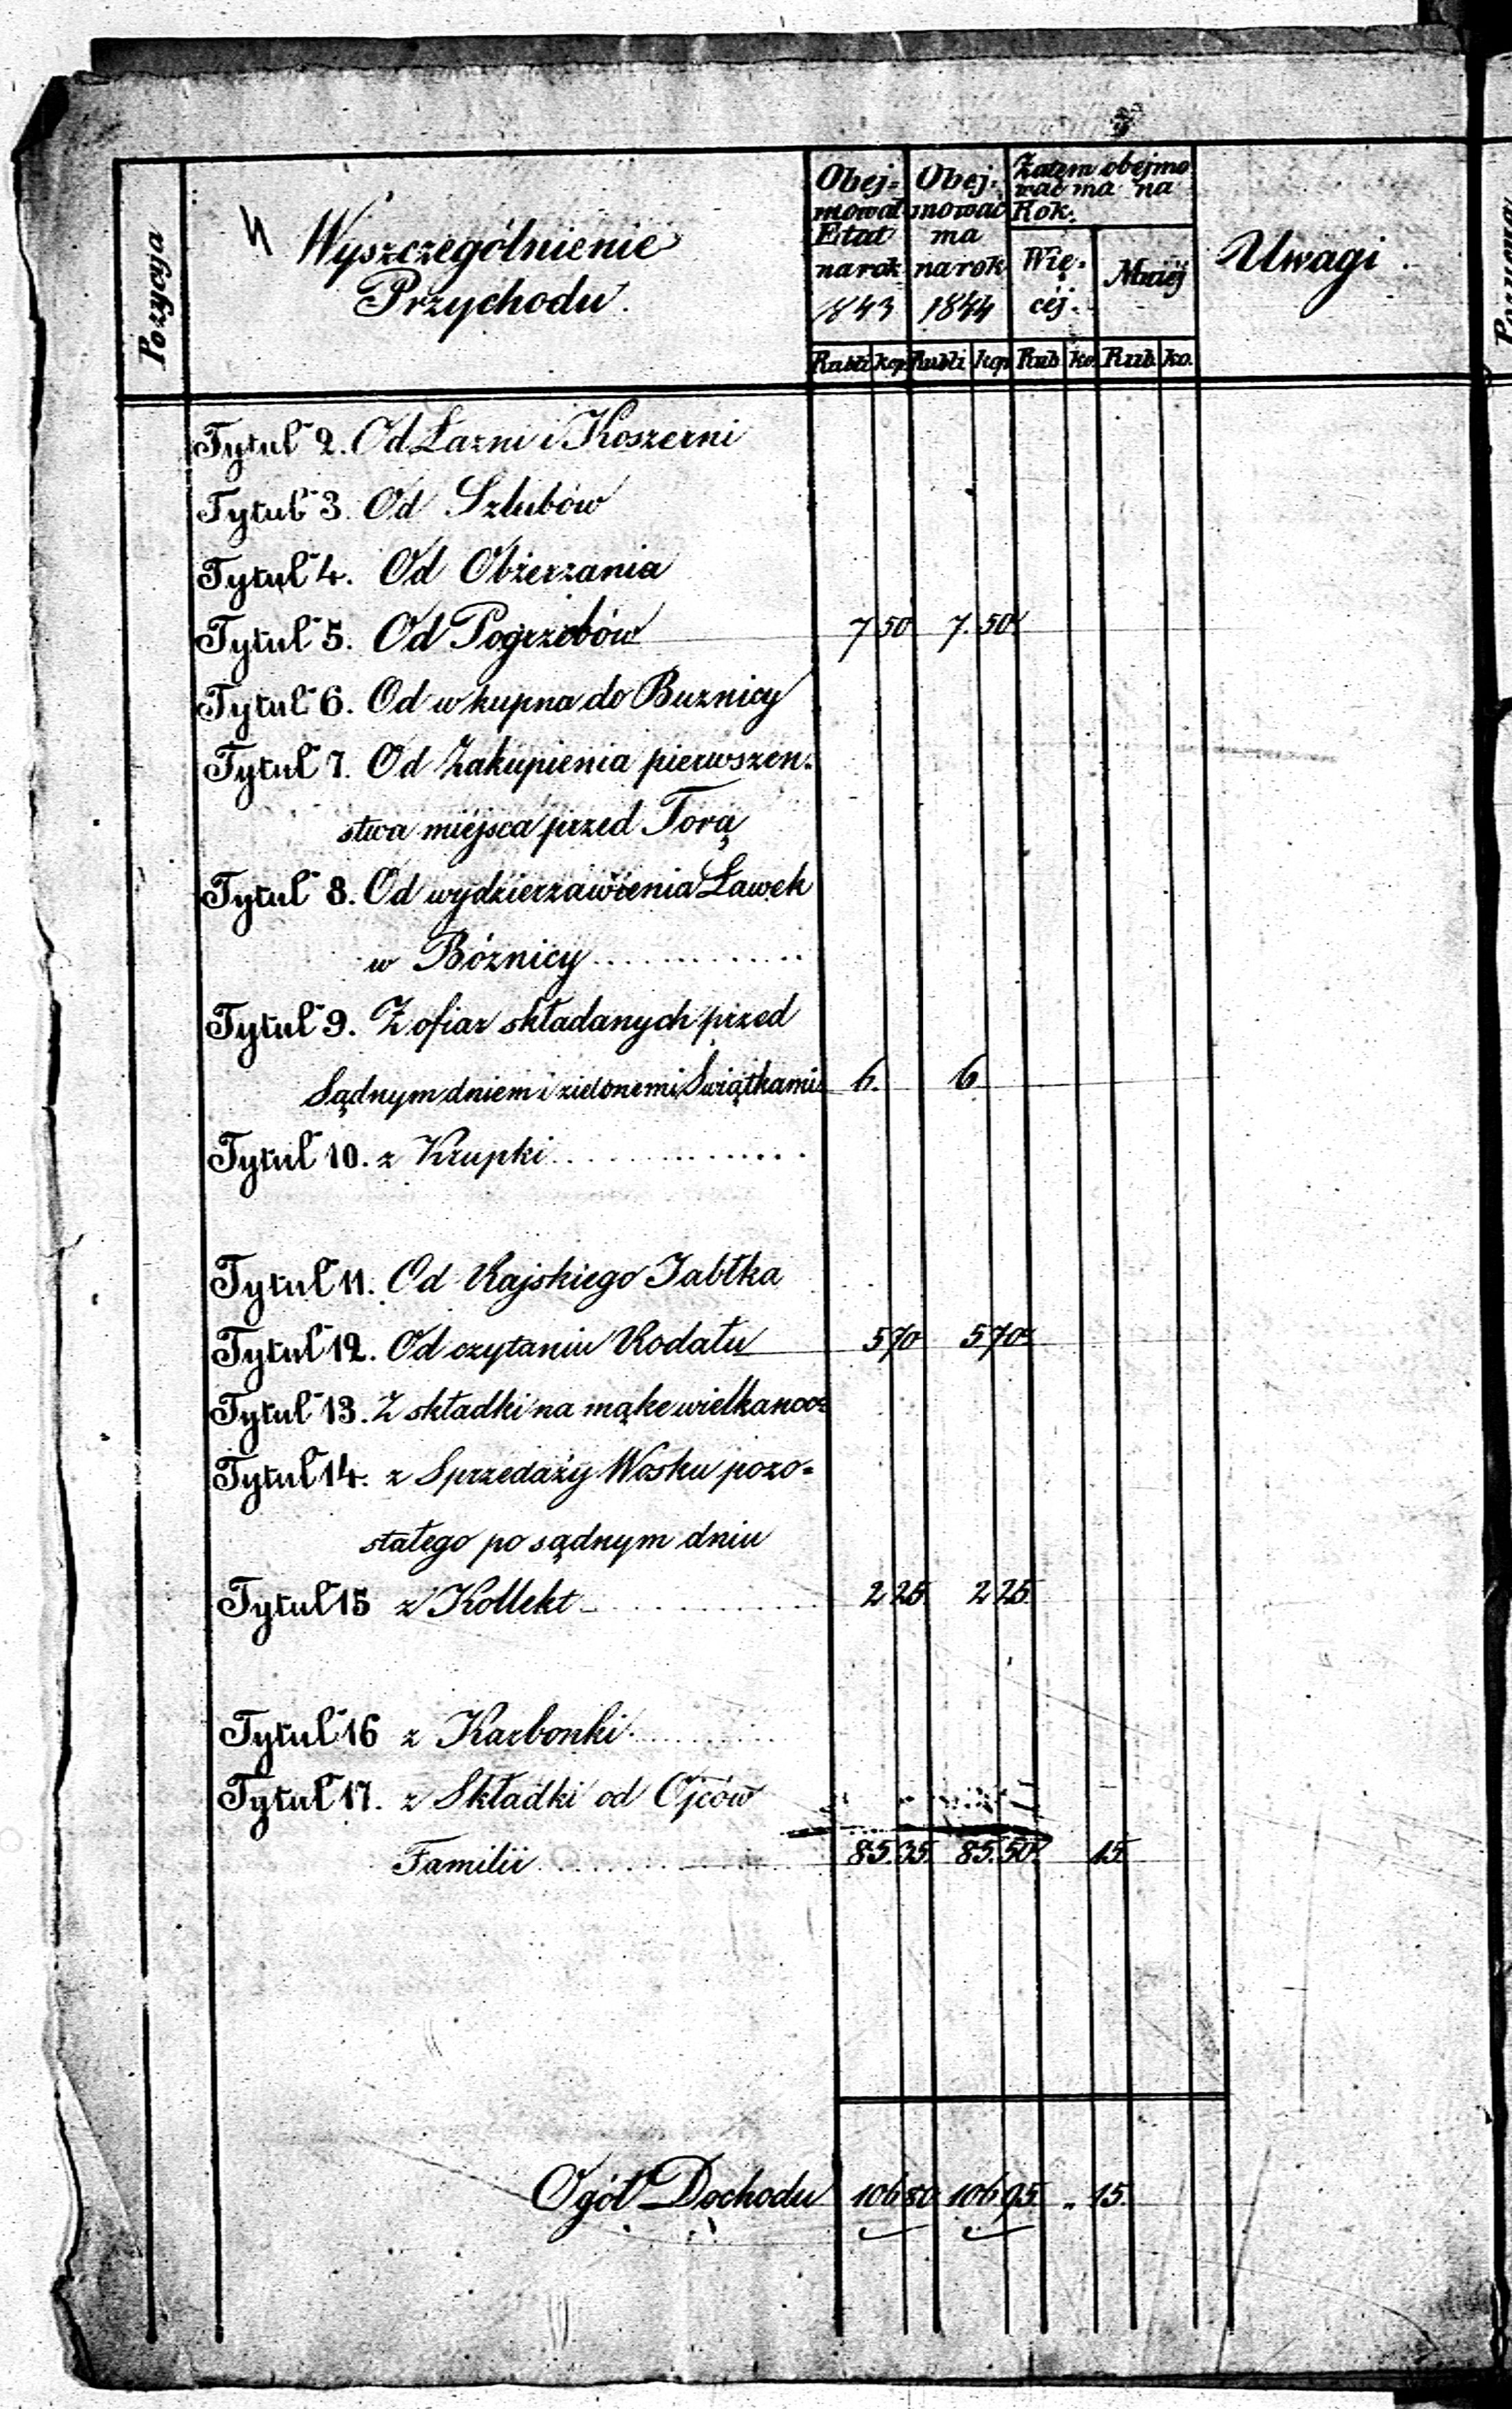 Pozycja
Wyszczególnienie
Przychodu.
Obej-
mował
Etat
na rok
1843
Obej-
mować
ma
na rok
1844
Zatem obejmo
wać ma na
Rok.
Wię-
céj.
Mniéj
Uwagi
Rubli kop Rubli kop Rub ko. Rub. ko.
Tytuł 2. Od Łazni i Koszerni
Tytuł 3. Od Szlubów
Tytuł 4. Od Obżerzania
Tytuł 5. Od Pogrzebów 7 50 7. 50
Tytuł 6. Od wkupna do Buznicy
Tytuł 7. Od Zakupienia pierwszen-
stwa miejsca przed Torą
Tytuł 8. Od wydzierzawienia Ławek
w Bóżnicy..............
Tytuł 9. Z ofiar składanych przed
Sądnym dniem i zielonemi Swiątkami 6. 6
Tytuł 10. z Krupki..............
Tytuł 11. Od Rajskiego Jabłka
Tytuł 12. Od czytaniu Rodału 5 70 5 70
Tytuł 13. Z składki na mąke wielkanoc
Tytuł 14. z Sprzedaży Wosku pozo-
stałego po sądnym dniu
Tytuł 15 z Kollekt.............. 2 25. 2 25.
Tytuł 16 z Karbonki..............
Tytuł 17. z Składki od Ojców
Familii.............. 85. 35. 85. 50. 15.
Ogół Dochodu 106 80 106 95. „ 15.